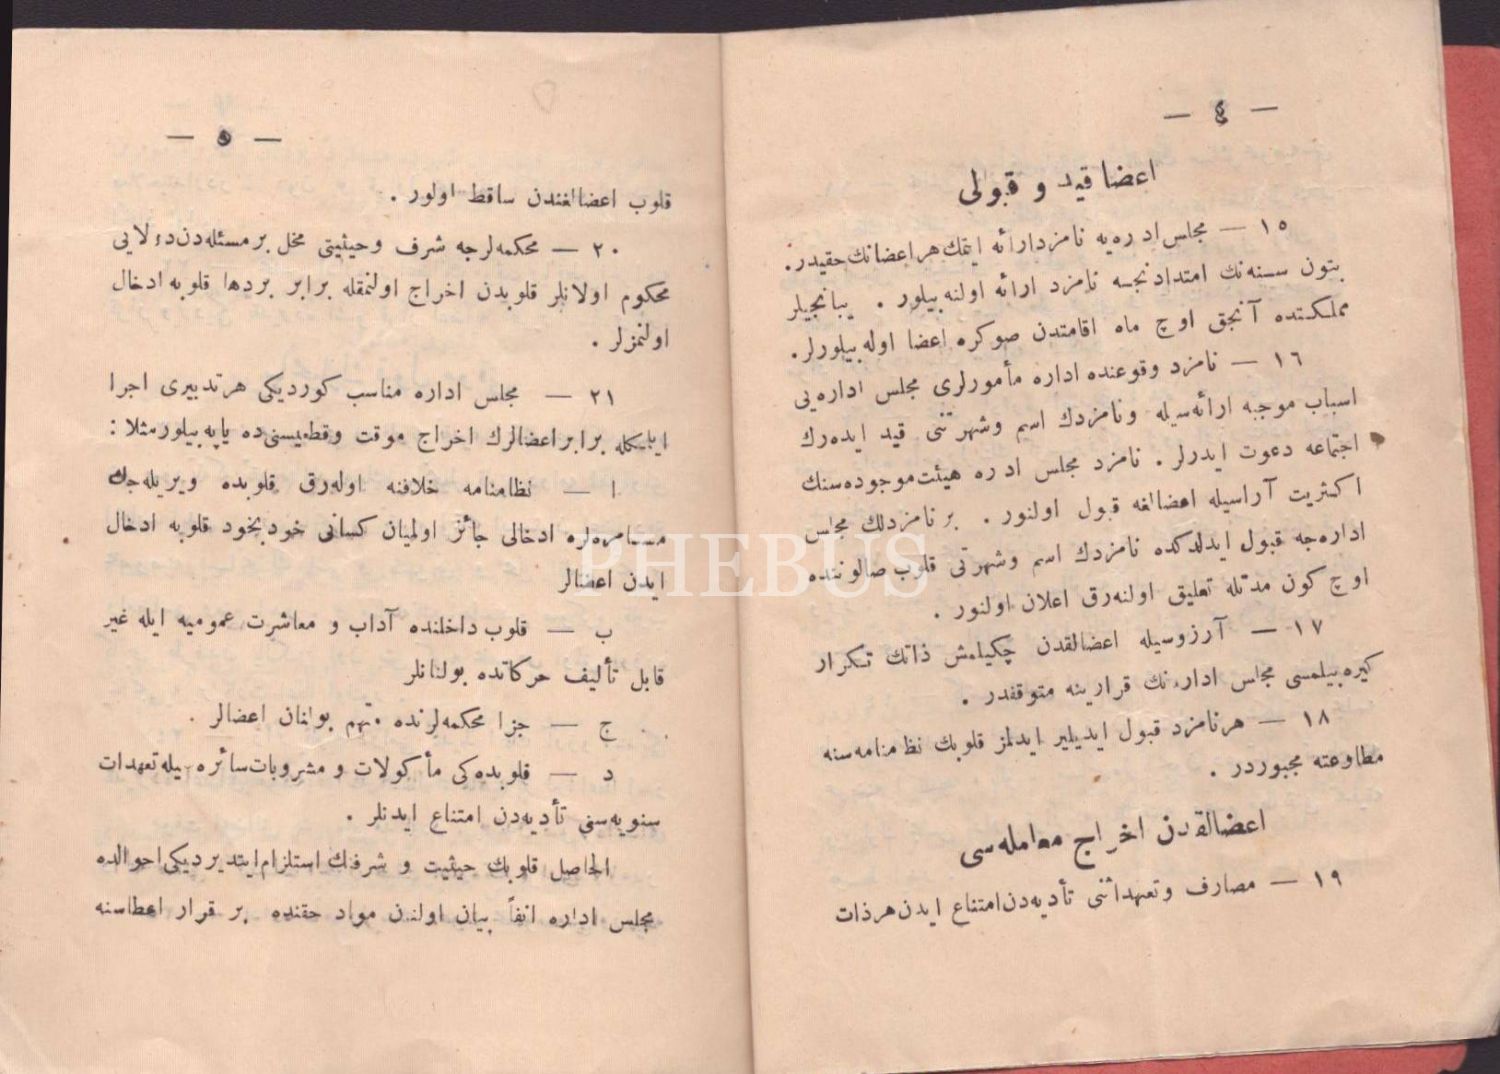 — ٤ —
اعضا قید و قبولی
١٥ — مجلس اداره‌یه نامزد ارائه ایتمك هر اعضانك حقیدر.
بتون سنه‌نك امتدادنجه نامزد ارائه اولنه بیلور . یبانجیلر
مملكتده آنجق اوچ ماه اقامتدن صوكره اعضا اوله بیلورلر.
١٦ — نامزد وقوعنده اداره مأمورلری مجلس اداره‌یی
اسباب موجبه ارائه‌سیله ونامزدك اسم وشهرتنی قید ایده‌رك
اجتماعه دعوت ایدرلر . نامزد مجلس اداره هیئت موجوده‌سنك
اكثریت آراسیله اعضالغه قبول اولنور . بر نامزدلك مجلس
اداره‌جه قبول ایدلدكده نامزدك اسم وشهرتی قلوب صالوننده
اوچ كون مدتله تعلیق اولنه‌رق اعلان اولنور .
١٧ — آرزوسیله اعضالقدن چكیلمش ذاتك تكرار
كیره بیلمسی مجلس اداره‌نك قرارینه متوقفدر .
١٨ — هرنامزد قبول ایدیلیر ایدلمز قلوبك نظامنامه‌سنه
مطاوعته مجبوردر .
اعضالقدن اخراج معامله‌سی
١٩ — مصارف وتعهداتنی تأدیه‌دن امتناع ایدن هرذات
— ٥ —
قلوب اعضالغندن ساقط اولور .
٢٠ — محكمه‌لرجه شرف وحیثیتی مخل برمسئله‌دن دولایی
محكوم اولانلر قلوبدن اخراج اولنمقله برابر بردها قلوبه ادخال
اولنمزلر .
٢١ — مجلس اداره مناسب كوردیكی هرتدبیری اجرا
ایتمكله برابر اعضالرك اخراج موقت وقطعیسنی‌ده یاپه بیلور مثلا :
ا — نظامنامه خلافنه اوله‌رق قلوبده ویریله‌جك
مسامره‌لره ادخالی جائز اولمیان كسانی خودبخود قلوبه ادخال
ایدن اعضالر
ب — قلوب داخلنده آداب و معاشرت عمومیه ایله غیر
قابل تألیف حركاتده بولنانلر
ج — جزا محكمه‌لرنده متهم بولنان اعضالر .
د — قلوبده‌كی مأكولات و مشروبات سائره‌یله تعهدات
سنویه‌سنی تأدیه‌دن امتناع ایدنلر .
الحاصل قلوبك حیثیت و شرفنك استلزام ایتدیردیكی احوالده
مجلس اداره آنفاً بیان اولنن مواد حقنده بر قرار اعطاسنه
PHEBUS